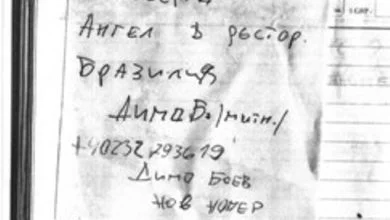 Ангел в рестор.
Бразилия
Димо Б./митн./
+40232793619
Димо Боев
нов номер